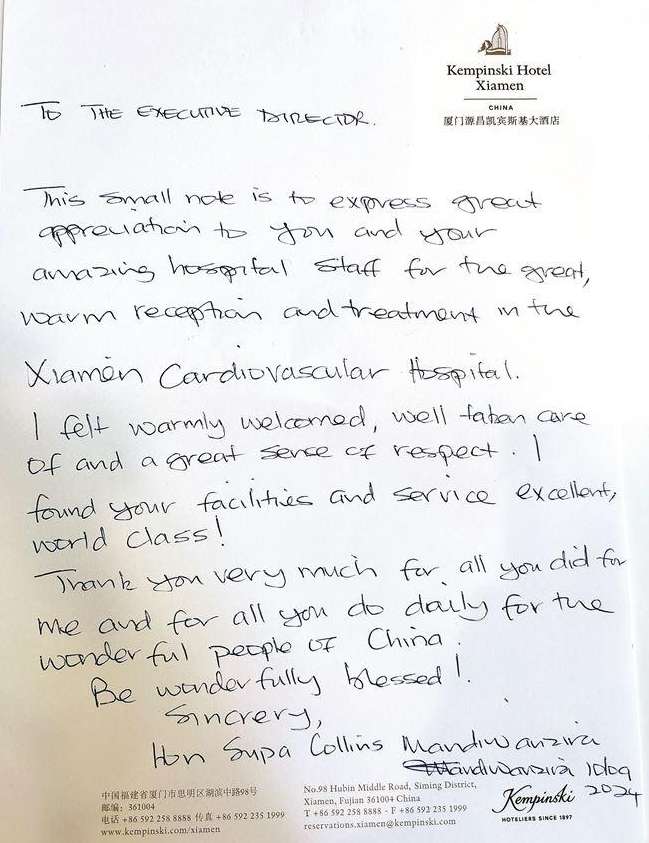 Kempinski Hotel
Xiamen
CHINA
厦门源昌凯宾斯基大酒店
TO THE EXECUTIVE DIRECTOR.
This small note is to express great
appreciation to you and your
amazing hospital staff for the great,
warm reception and treatment in the
Xiamen Cardiovascular Hospital.
I felt warmly welcomed, well taken care
of and a great sense of respect. I
found your facilities and service excellent,
world class!
Thank you very much for all you did for
me and for all you do daily for the
wonderful people of China.
Be wonderfully blessed!
Sincrery,
Hon Supa Collins Mandiwanzira
Mandiwanzira 10/09
2024
中国福建省厦门市思明区湖滨中路98号
邮编：361004
电话 +86 592 258 8888 传真 +86 592 235 1999
www.kempinski.com/xiamen
No.98 Hubin Middle Road, Siming District,
Xiamen, Fujian 361004 China
T +86 592 258 8888 - F +86 592 235 1999
reservations.xiamen@kempinski.com
Kempinski
HOTELIERS SINCE 1897